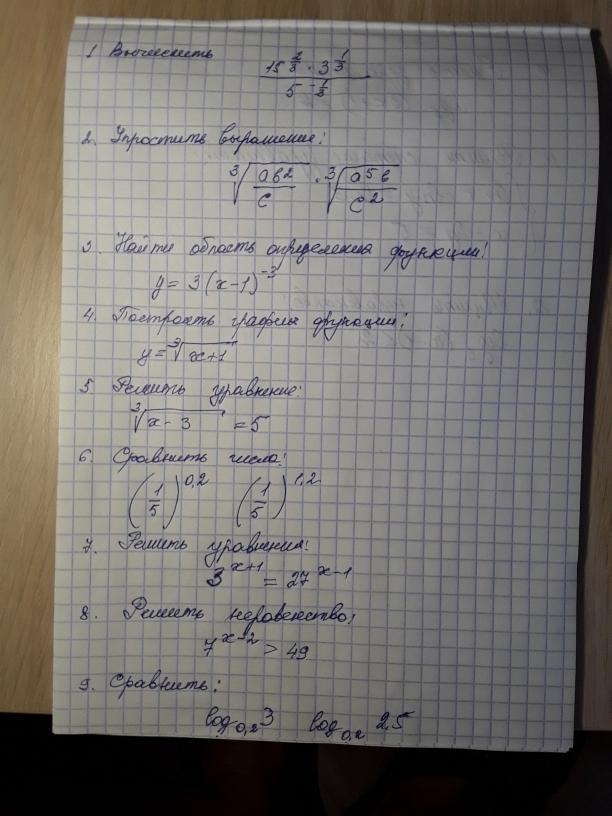 1 Вычислить
15^(2/3) · 3^(1/3)
5^(-1/3)
2. Упростить выражение:
∛(ab²/c) · ∛(a⁵b/c²)
3. Найти область определения функции:
y = 3(x-1)^(-3)
4. Построить график функции:
y = ∛(x+1)
5 Решить уравнение:
∛(x-3) = 5
6. Сравнить числа:
(1/5)^0,2 (1/5)^1,2
7. Решить уравнения:
3^(x+1) = 27^(x-1)
8. Решить неравенство:
7^(x-2) > 49
9. Сравнить:
log₀,₂ 3 log₀,₂ 2,5